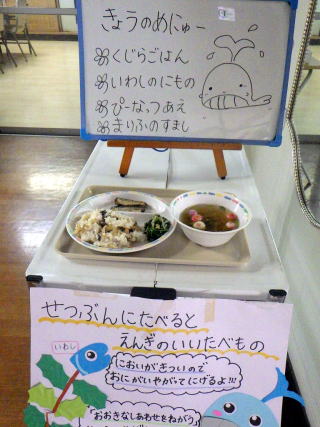 きょうのめにゅー
くじらごはん
いわしのにもの
ぴーなっつあえ
まりふのすまし
せつぶんにたべると
えんぎのいいたべもの
いわし
においがきついので
おにがいやがってにげるよ!!!
"おおきなしあわせをねがう